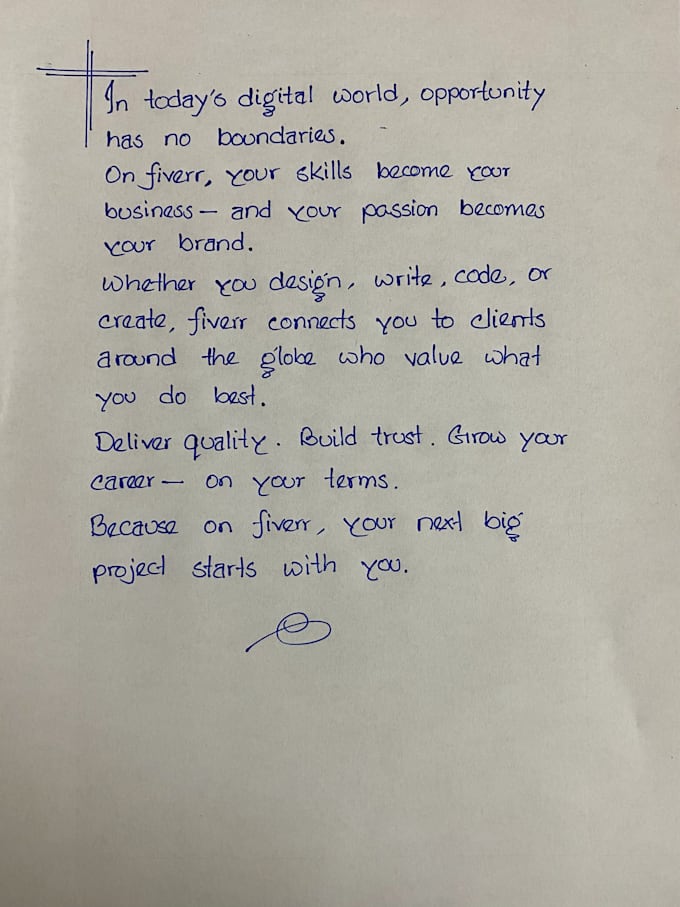 In today's digital world, opportunity
has no boundaries.
On fiverr, your skills become your
business — and your passion becomes
your brand.
Whether you design, write, code, or
create, fiverr connects you to clients
around the globe who value what
you do best.
Deliver quality. Build trust. Grow your
career — on your terms.
Because on fiverr, your next big
project starts with you.